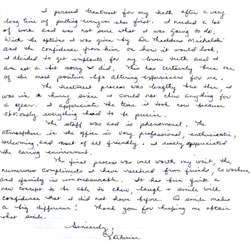 I pursued treatment for my teeth after a very
long time of putting everyone else first. I needed a lot
of work and was not sure what I was going to do.
With the options I was given by Dr. Thaddeus Michalak
and the confidence from him on how it would look,
I decided to get implants for my lower teeth and I
am not a bit sorry I did. This has certainly been one
of the most positive life altering experiences for me.
The treatment process was lengthy but then I
was in a hurry since I could not chew anything for
a year. I appreciate the time it took now because
obviously everything had to be precise.
The staff was and is phenomenal. The
atmosphere in the office is very professional, enthusiastic,
welcoming and most of all friendly. I really appreciated
the caring environment.
The final process was well worth my wait. The
numerous compliments I have received from friends, co workers
and family is immeasurable. It has been quite a
new concept to be able to chew, laugh & smile with
confidence that I did not have before. A smile makes
a big difference! Thank you for helping me obtain
that smile.
Sincerely,